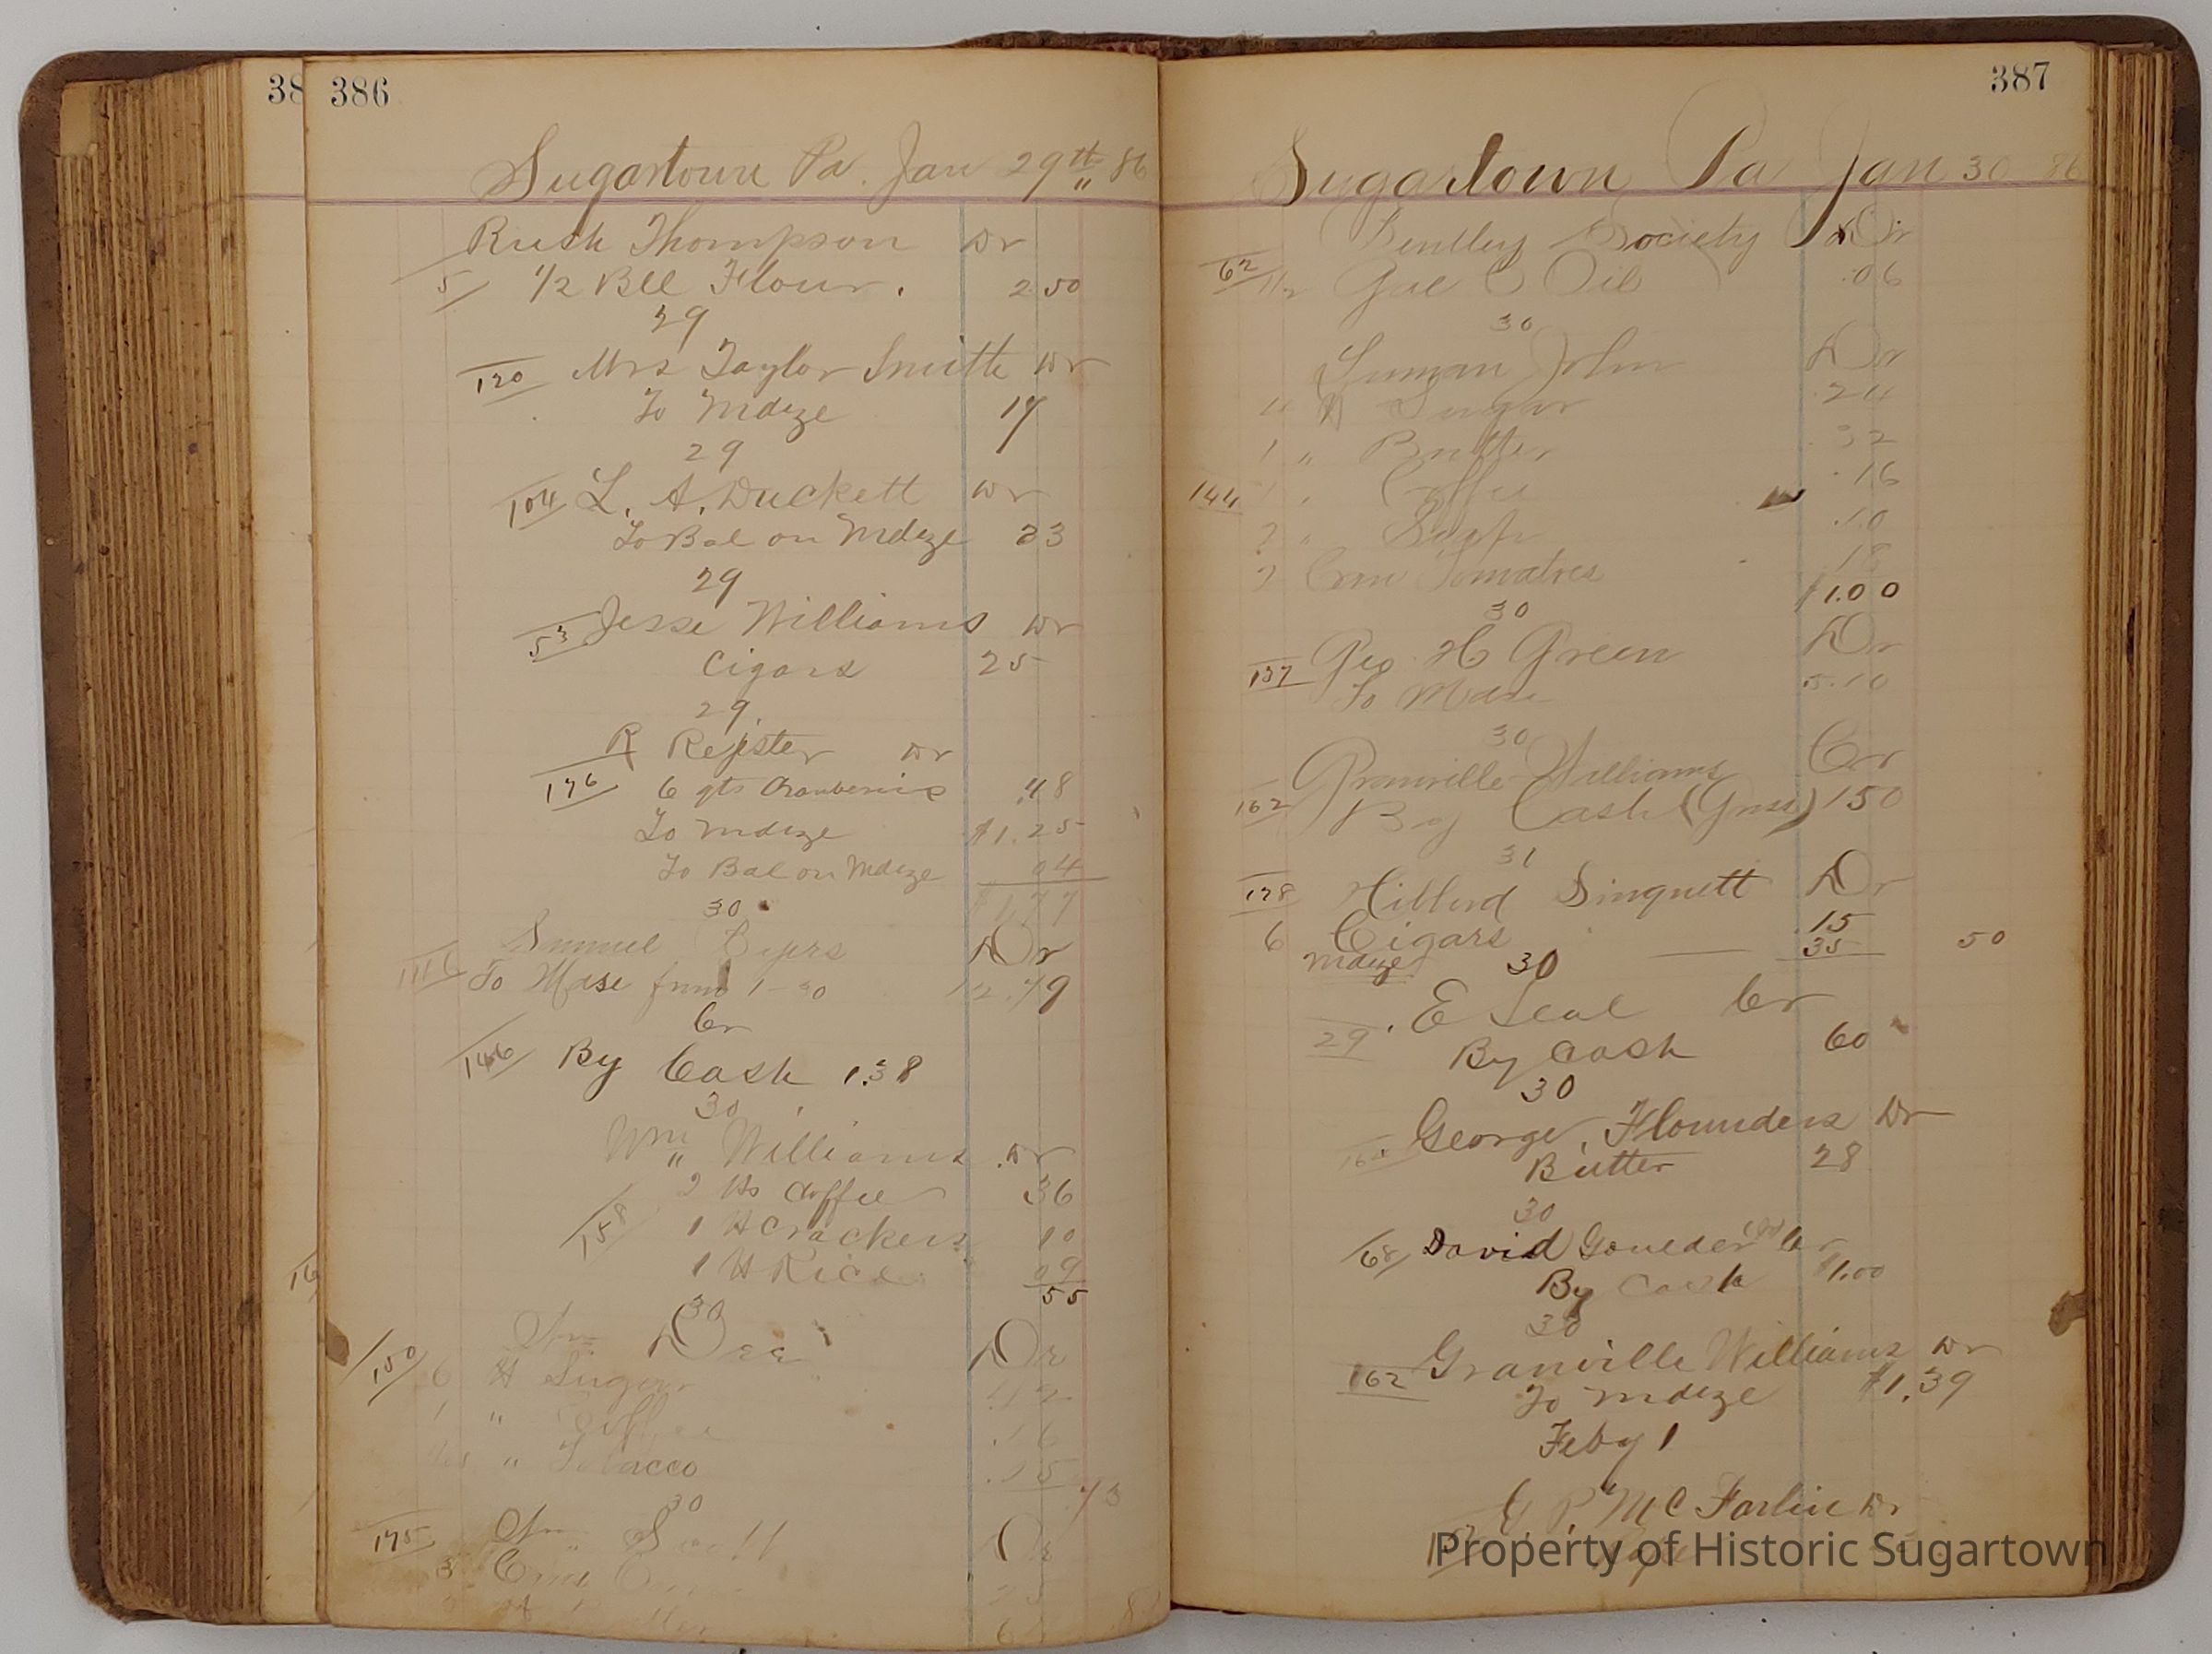 38
386
Sugartown Pa. Jan 29th 86
Rush Thompson Dr
5 1/2 Bll Flour. 2 50
29
120 Mrs Taylor Smith Dr
To Mdze 17
29
104 L. A. Duckett Dr
To Bal on Mdze 23
29
53 Jesse Williams Dr
Cigars 25
29
R Rejister Dr
176 6 qts Cranberries .48
To Mdze $1.25
To Bal on Mdze 04
$1,77
30
Samuel Byers Dr
To Mdse from 1-30 12.79
Cr
146 By Cash 1.38
30
Wm Williams Dr
2 lbs Coffee 36
158 1 lb Crackers 10
1 lb Rice 09
55
30
Dr
150 6 lb Sugar .42
1 " Coffee .16
" Tobacco .15 73
30
175 Scott Dr
3
25
16
387
Sugartown Pa Jan 30 86
Bentley Society Dr
62 1/2 Gal C Oil .06
30
Luman John Dr
4 lb Sugar .24
1 " Butter .32
144 1 " Coffee .16
2 " .10
2 Can Tomatoes 18
$1.00
30
137 Geo. H Green Dr
To Mdse 5.10
30
Granville Williams Cr
162 By Cash (Gnss) 150
31
178 Hilbord Singuett Dr
6 Cigars .15
Mdze 35 50
30
29 E Seal Cr
By Cash 60
30
George Flounders Dr
Butter 28
30
68 David Goulder Cr
By Cash $1.00
30
162 Granville Williams Dr
To Mdze $1.39
Feby 1
P. McFarlin Dr
Property of Historic Sugartown